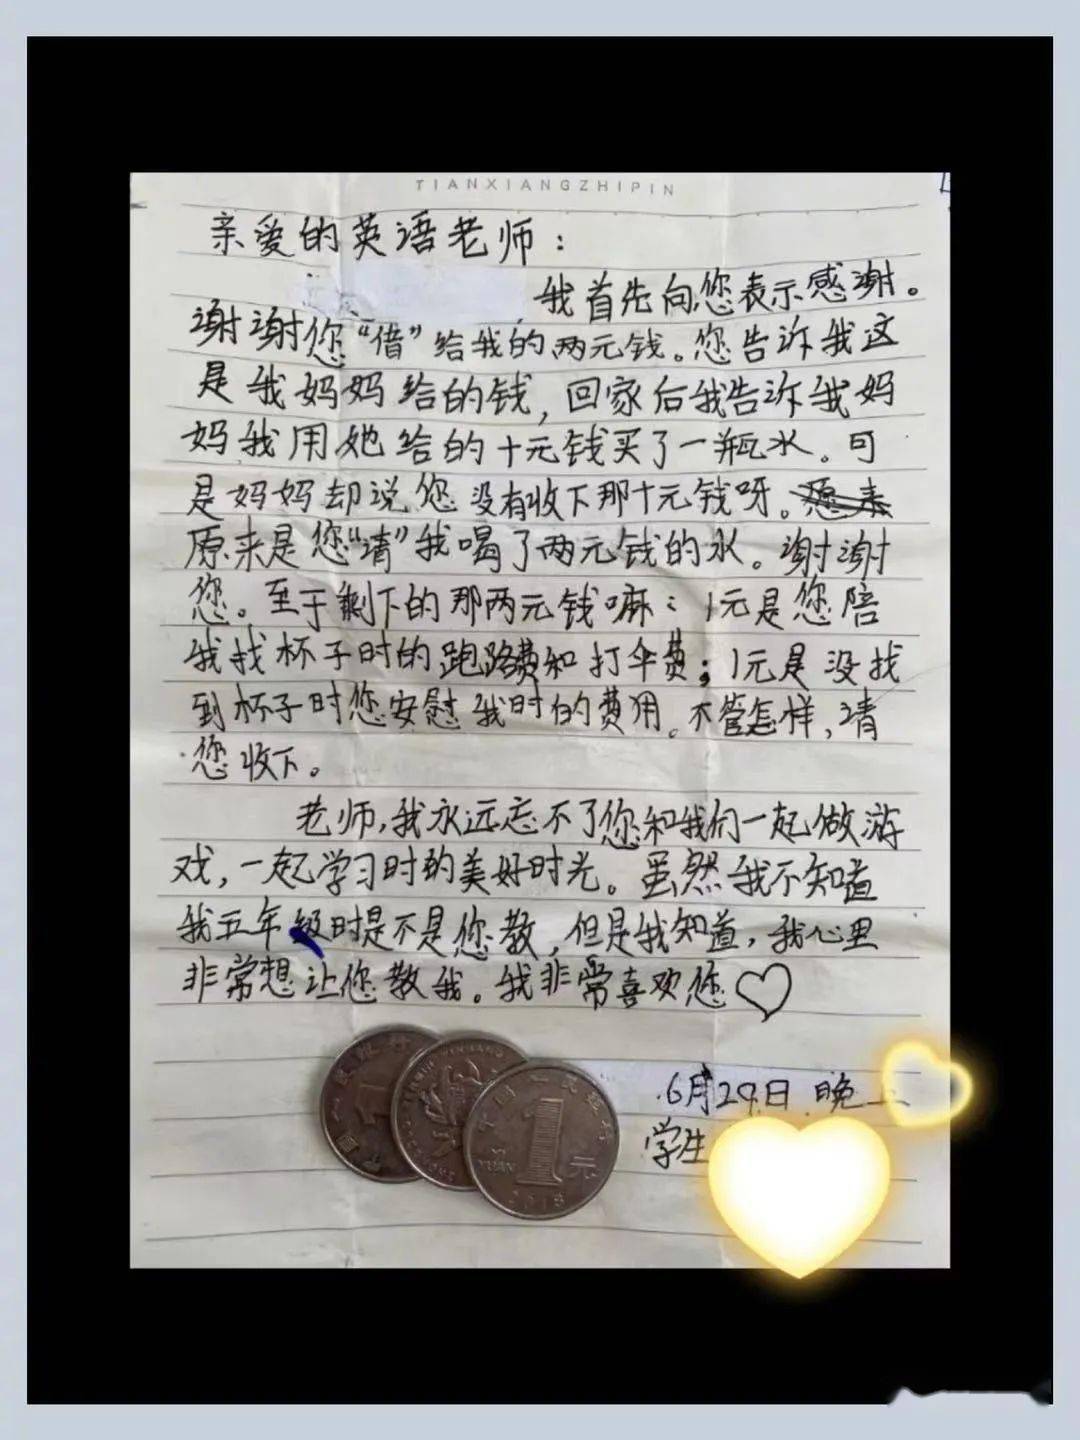 TIANXIANGZHIPIN
亲爱的英语老师：
我首先向您表示感谢。
谢谢您“借”给我的两元钱。您告诉我这
是我妈妈给的钱，回家后我告诉我妈
妈我用她给的十元钱买了一瓶水。可
是妈妈却说您没有收下那十元钱呀。
原来是您“请”我喝了两元钱的水。谢谢
您。至于剩下的那两元钱嘛：1元是您陪
我找杯子时的跑路费和打伞费；1元是没找
到杯子时您安慰我时的费用。不管怎样，请
您收下。
老师，我永远忘不了您和我们一起做游
戏，一起学习时的美好时光。虽然我不知道
我五年级时是不是您教，但是我知道，我心里
非常想让您教我。我非常喜欢您♡
6月29日 晚上
学生
中国人民银行
1
YI YUAN
元
2018